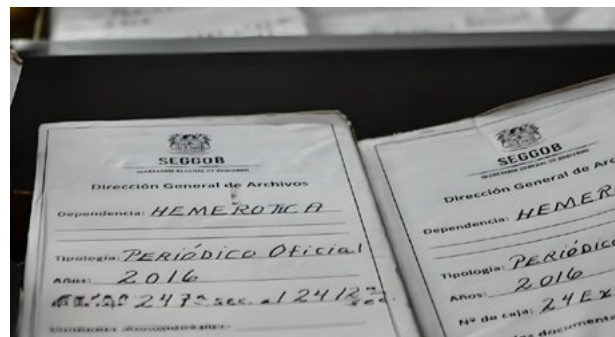 SEGGOB
SECRETARÍA GENERAL DE GOBIERNO
Dirección General de Archivos
Dependencia: HEMEROTICA
Tipología: PERIÓDICO Oficial
Años: 2016
SEGGOB
SECRETARÍA GENERAL DE GOBIERNO
Dirección General de Arc
Dependencia: HEMER
Tipología: PERIÓDIC
Años: 2016
Nº de caja: 24 Ex